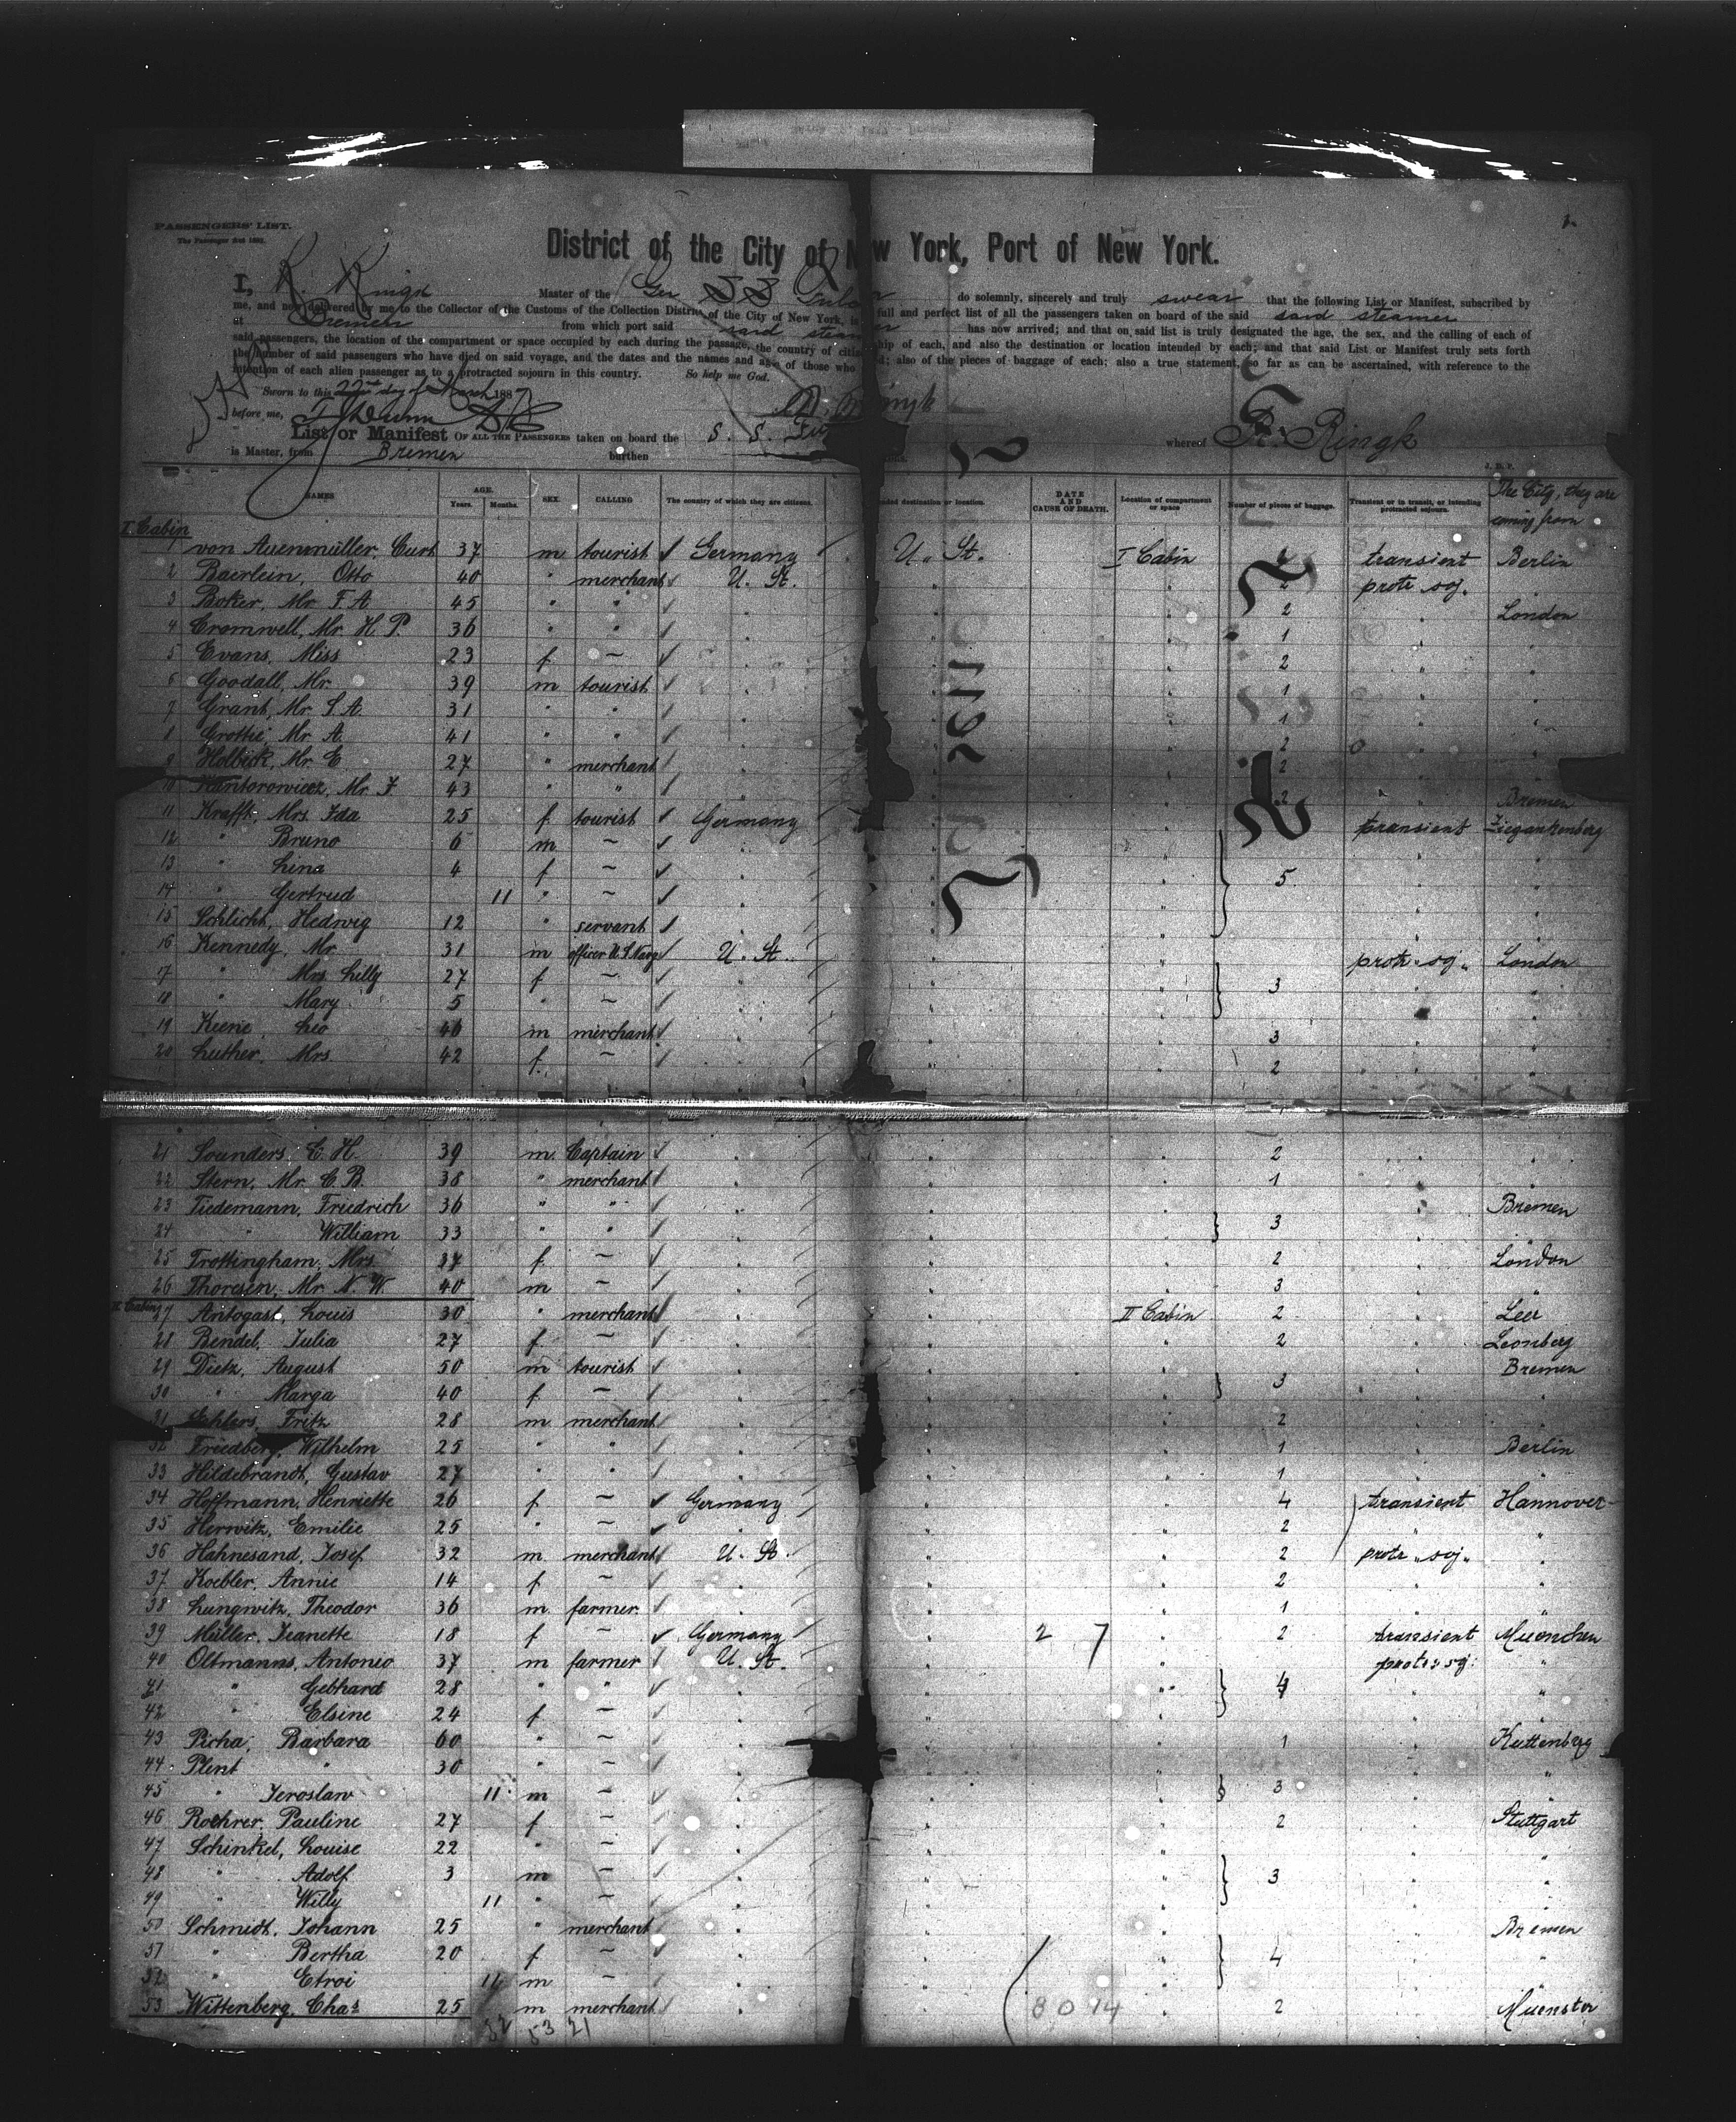 PASSENGERS' LIST.
The Passenger Act 1882.
District of the City of New York, Port of New York.
I, R. Ringk Master of the Ger SS Fulda do solemnly, sincerely and truly swear that the following List or Manifest, subscribed by
me, and now delivered by me to the Collector of the Customs of the Collection District of the City of New York, is full and perfect list of all the passengers taken on board of the said said steamer
at Bremen from which port said said steamer has now arrived; and that on said list is truly designated the age, the sex, and the calling of each of
said passengers, the location of the compartment or space occupied by each during the passage, the country of citizenship of each, and also the destination or location intended by each; and that said List or Manifest truly sets forth
the number of said passengers who have died on said voyage, and the dates and the names and ages of those who died; also of the pieces of baggage of each; also a true statement, so far as can be ascertained, with reference to the
intention of each alien passenger as to a protracted sojourn in this country. So help me God.
Sworn to this 22nd day of March 1887
before me, R. Ringk
List or Manifest OF ALL THE PASSENGERS taken on board the S. S. whereof R. Ringk
is Master, from Bremen burthen tons.
NAMES AGE. Years. Months. SEX. CALLING The country of which they are citizens. Intended destination or location. DATE AND CAUSE OF DEATH. Location of compartment or space Number of pieces of baggage. Transient or in transit, or intending protracted sojourn. The City, they are coming from
I Cabin
1 von Auenmüller, Curt 37 m tourist Germany U. St. I Cabin transient Berlin
2 Baerlein, Otto 40 " merchant U. St. " " 2 protr. soj. "
3 Boker, Mr F A 45 " " " " " 2 " London
4 Cromwell, Mr. H. P. 36 " " " " " 1 " "
5 Evans, Miss 23 f – " " " 2 " "
6 Goodall, Mr. 39 m tourist " " " 1 " "
7 Grant, Mr. S A. 31 " " " " " 1 " "
8 Grottie, Mr A. 41 " " " " " 2 " "
9 Holbeck, Mr. E. 27 " merchant " " " 2 " "
10 Kantorowicz, Mr. J 43 " " " " " 2 " Bremen
11 Krafft, Mrs. Ida 25 f. tourist Germany " " transient Ziegankenberg
12 " Bruno 6 m – " " " " "
13 " Lina 4 f – " " " 5 " "
14 " Gertrud 11 " – " " " " "
15 Schlicht, Hedwig 12 " servant " " " " "
16 Kennedy, Mr. 31 m officer U. S. Navy U. St. " " protr. soj. London
17 " Mrs. Lilly 27 f – " " " 3 " "
18 " Mary 5 " – " " " " "
19 Keene, Leo 46 m merchant " " " 3 " "
20 Luther, Mrs. 42 f. – " " " 2 " "
21 Sounders, C. H. 39 m. Captain " " " 2 " "
22 Stern, Mr. C. B. 38 " merchant " " " 1 " "
23 Tiedemann, Friedrich 36 " " " " " " Bremen
24 " William 33 " " " " " 3 " "
25 Trottingham, Mrs. 37 f. – " " " 2 " London
26 Thoresen, Mr. N. W. 40 m – " " " 3 " "
II Cabin
27 Antogast, Louis 30 " merchant " " II Cabin 2 " Leer
28 Bendel, Julia 27 f. – " " " 2 " Leonberg
29 Dietz, August 50 m tourist " " " " Bremen
30 " Marga 40 f. – " " " 3 " "
31 Gehlers, Fritz 28 m merchant " " " 2 " "
32 Friedberg, Wilhelm 25 " " " " " 1 " Berlin
33 Hildebrandt, Gustav 27 " " " " " 1 " "
34 Hoffmann, Henriette 26 f. – Germany " " 4 transient Hannover
35 Herwitz, Emilie 25 " – " " " 2 " "
36 Hahnesand, Josef 32 m. merchant U. St. " " 2 protr. soj. "
37 Koebler, Annie 14 f – " " " 2 " "
38 Lungwitz, Theodor 36 m. farmer. " " " 1 " "
39 Müller, Jeanette 18 f – Germany " 2 7 " 2 transient Muenchen
40 Oltmanns, Antoneo 37 m farmer U. St. " " protr. soj. "
41 " Gebhard 28 " " " " " 4 " "
42 " Elsine 24 f – " " " " "
43 Picha, Barbara 60 " – " " " 1 " Kuttenberg
44 Plent " 30 " – " " " " "
45 " Jeroslaw 11 m – " " " 3 " "
46 Roehrer, Pauline 27 f – " " " 2 " Stuttgart
47 Schinkel, Louise 22 " – " " " " "
48 " Adolf 3 m – " " " 3 " "
49 " Willy 11 " – " " " " "
50 Schmidt, Johann 25 " merchant " " " " Bremen
51 " Bertha 20 f – " " " 4 " "
52 " Etroi 11 m – " " " " "
53 Wittenberg, Chas 25 m merchant " " 8074 " 2 " Muenster
53 21